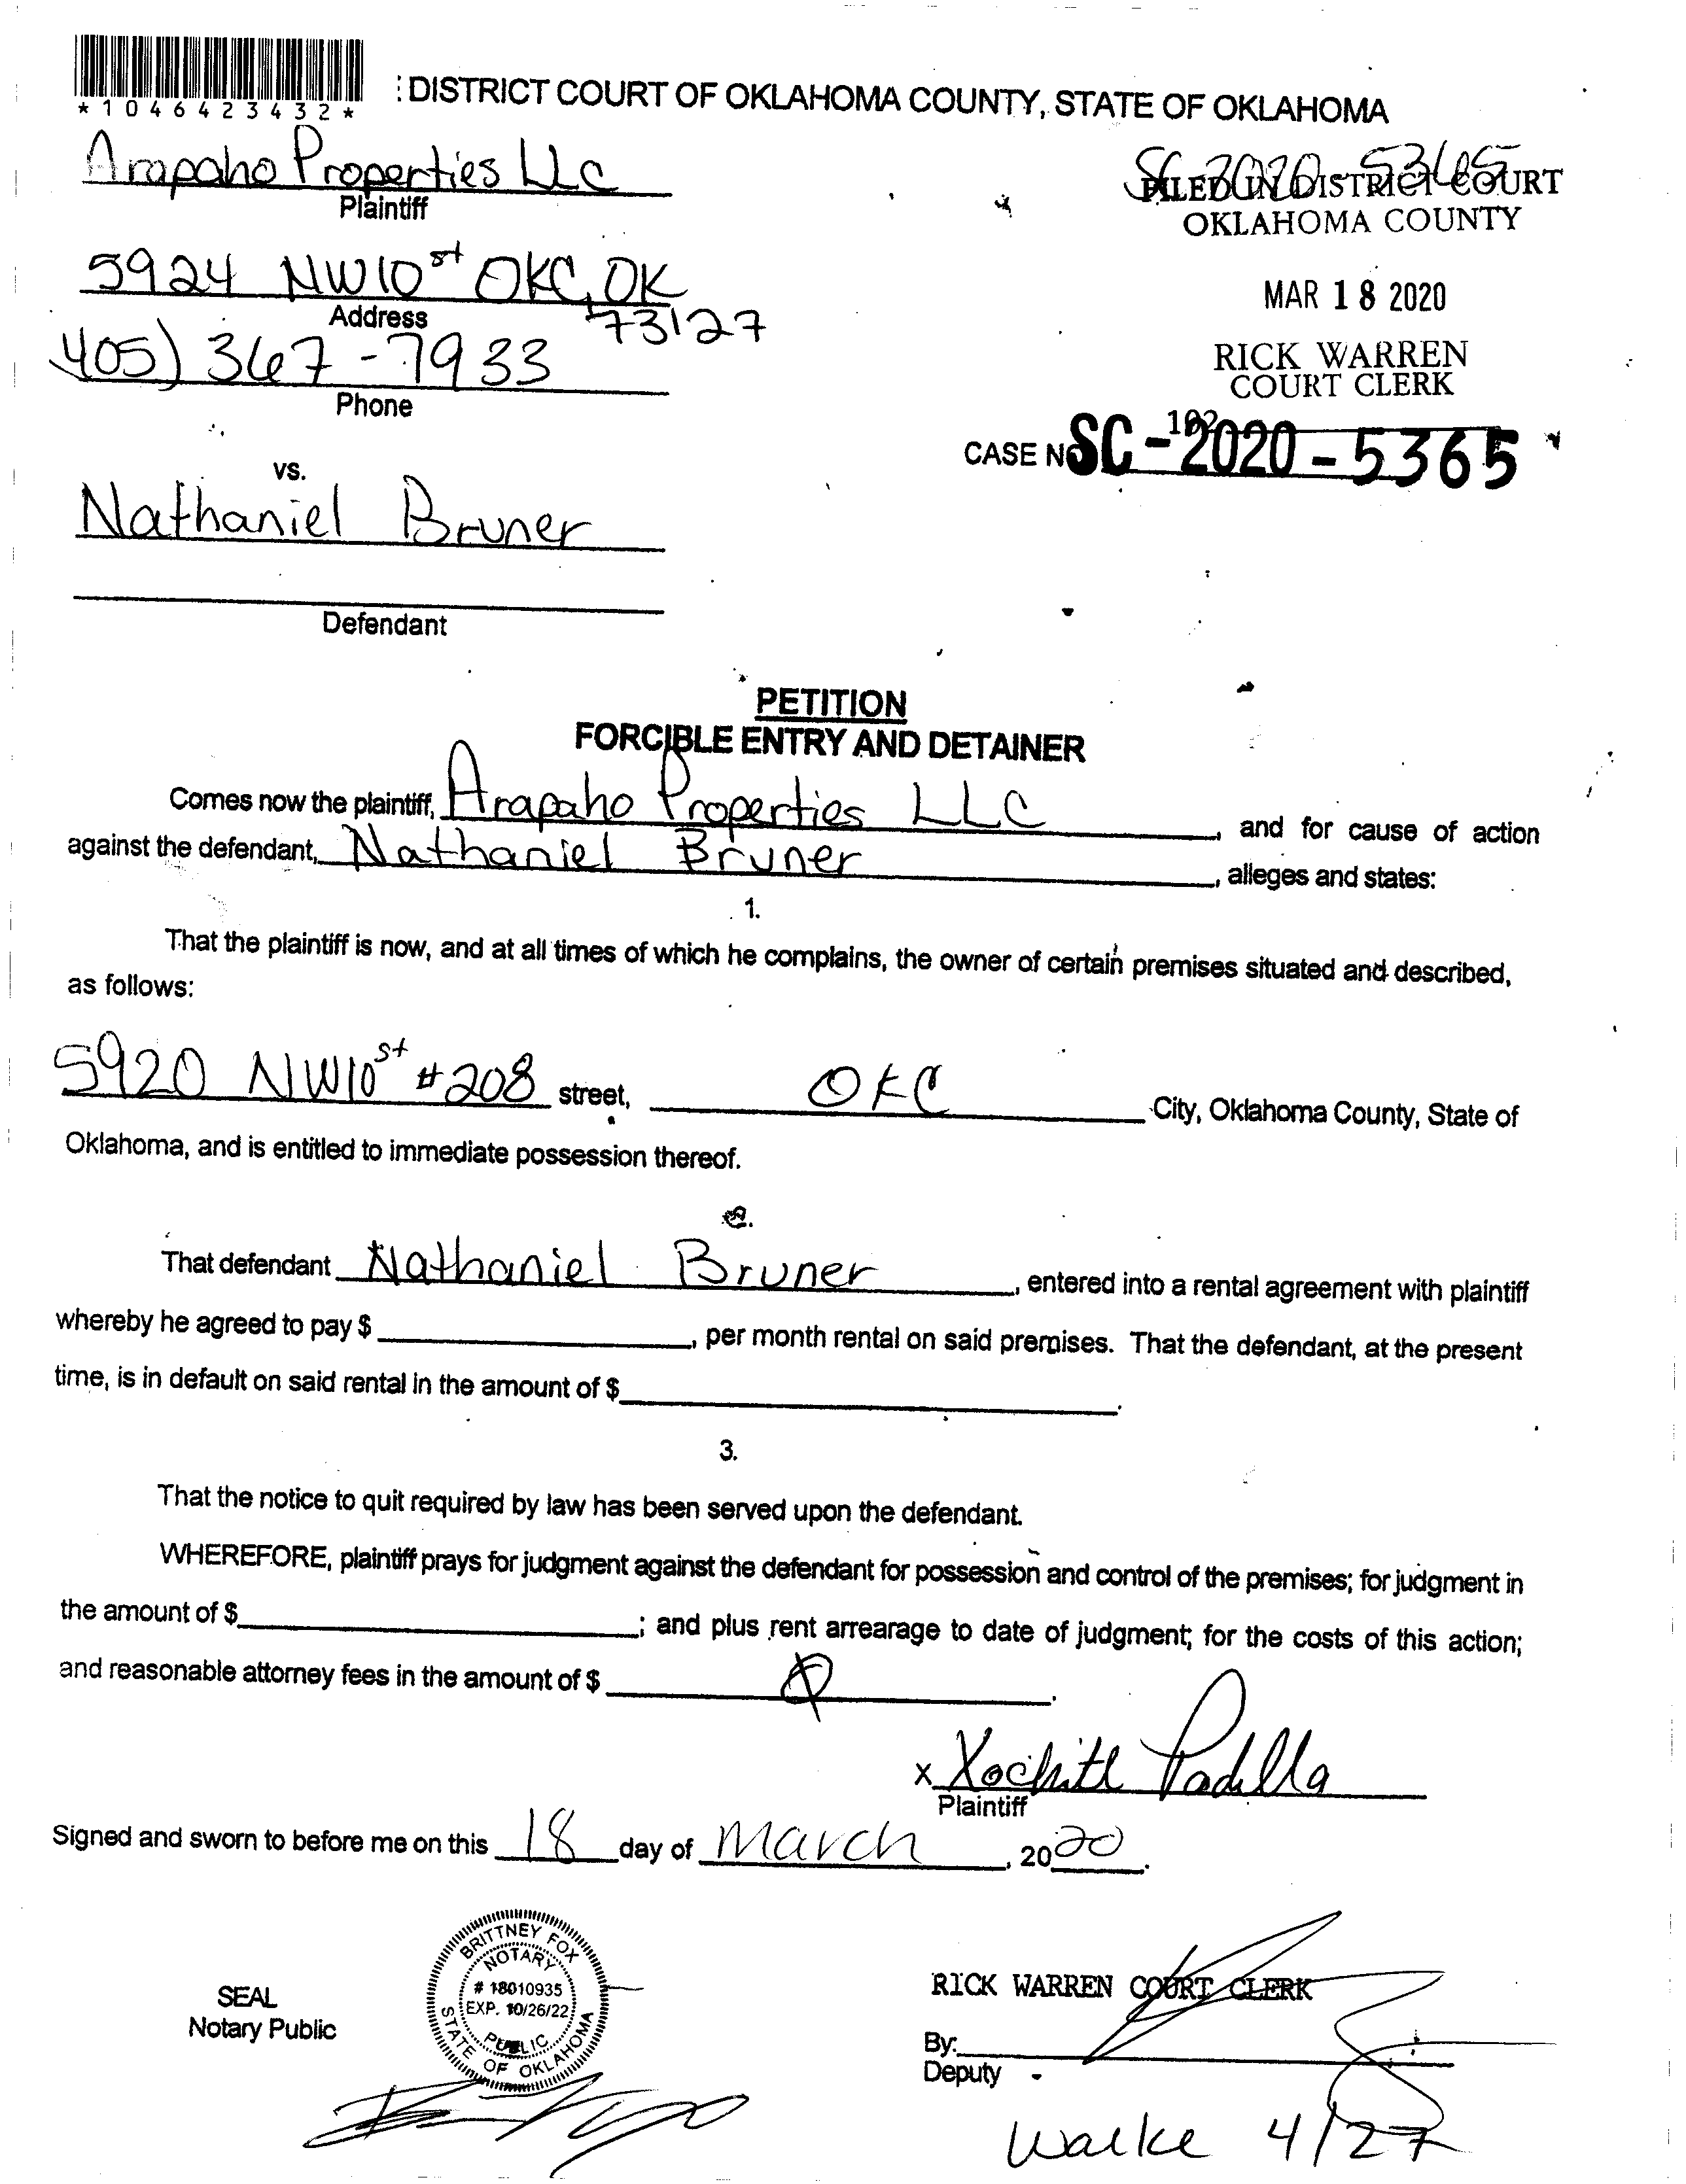 *1046423432*
: DISTRICT COURT OF OKLAHOMA COUNTY, STATE OF OKLAHOMA
Arapaho Properties LLC
Plaintiff
SC 2020-5365
FILED IN DISTRICT COURT
OKLAHOMA COUNTY
5924 NW10st OKC, OK
73127
Address
MAR 18 2020
405) 367-7933
Phone
RICK WARREN
COURT CLERK
102
CASE NO SC-2020-5365
vs.
Nathaniel Bruner
Defendant
PETITION
FORCIBLE ENTRY AND DETAINER
Comes now the plaintiff, Arapaho Properties LLC, and for cause of action
against the defendant, Nathaniel Bruner, alleges and states:
1.
That the plaintiff is now, and at all times of which he complains, the owner of certain premises situated and described,
as follows:
5920 NW10st #208 street, OKC City, Oklahoma County, State of
Oklahoma, and is entitled to immediate possession thereof.
That defendant Nathaniel Bruner, entered into a rental agreement with plaintiff
whereby he agreed to pay $, per month rental on said premises. That the defendant, at the present
time, is in default on said rental in the amount of $.
3.
That the notice to quit required by law has been served upon the defendant.
WHEREFORE, plaintiff prays for judgment against the defendant for possession and control of the premises; for judgment in
the amount of $; and plus rent arrearage to date of judgment; for the costs of this action;
and reasonable attorney fees in the amount of $.
x Xochitl Padilla
Plaintiff
Signed and sworn to before me on this 18 day of March, 2020.
SEAL
Notary Public
BRITTNEY FOX
NOTARY
# 18010935
EXP. 10/26/22
PUBLIC
STATE OF OKLAHOMA
RICK WARREN COURT CLERK
By:
Deputy
Walke 4/27